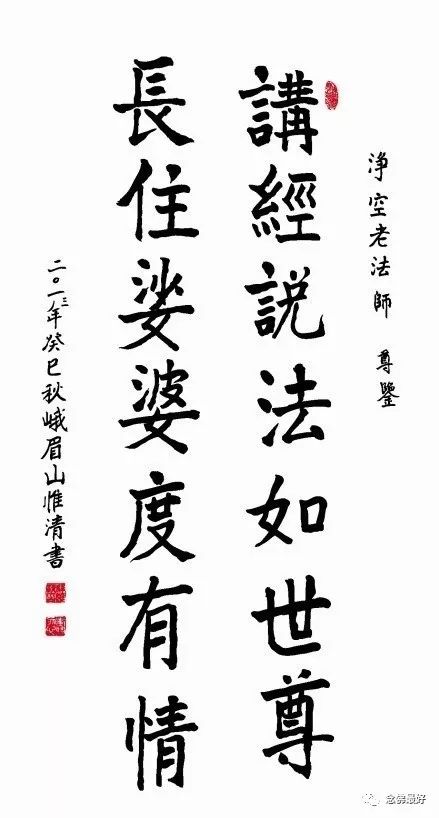 淨空老法師 尊鑒
講經説法如世尊
長住娑婆度有情
二〇一三年癸巳秋峨眉山惟清書
念佛最好